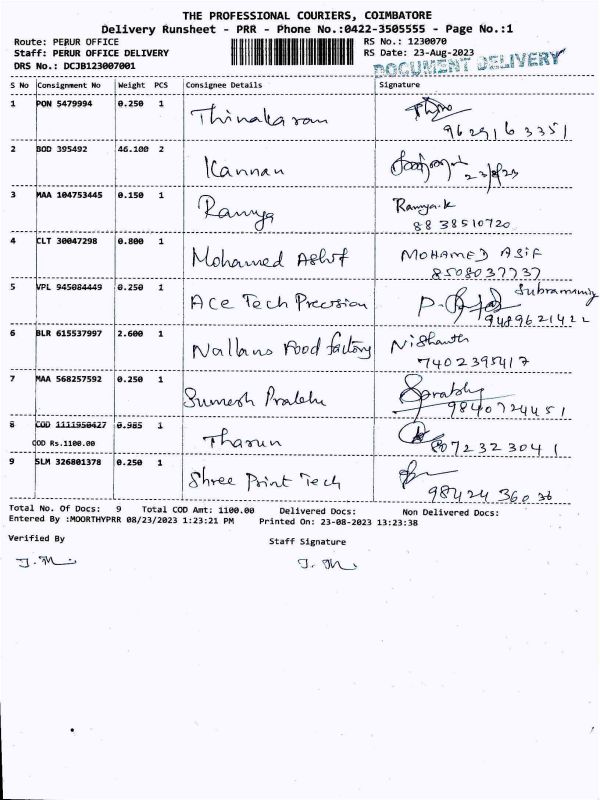 THE PROFESSIONAL COURIERS, COIMBATORE
Delivery Runsheet - PRR - Phone No.:0422-3505555 - Page No.:1
Route: PERUR OFFICE RS No.: 1230070
Staff: PERUR OFFICE DELIVERY RS Date: 23-Aug-2023
DRS No.: DCJB123007001 DOCUMENT DELIVERY
S No Consignment No Weight PCS Consignee Details Signature
1 PON 5479994 0.250 1 Thinakaran
9629163351
2 BOD 395492 46.100 2 Kannan
23/8/23
3 MAA 104753445 0.150 1 Ramya Ramya.K
8838510720
4 CLT 30047298 0.800 1 Mohamed MOHAMED ASIF
8508037737
5 VPL 945084449 0.250 1 Ace Tech Precision
9489621422
6 BLR 615537997 2.600 1 Nallans Food factory Nishanth
7402395417
7 MAA 568257592 0.250 1 Sumesh Prabhu
9840724451
8 COD 1111950427 0.985 1 Tharun
COD Rs.1100.00 8072323041
9 SLM 326801378 0.250 1 Shree Print Tech
98424 36036
Total No. Of Docs: 9 Total COD Amt: 1100.00 Delivered Docs: Non Delivered Docs:
Entered By :MOORTHYPRR 08/23/2023 1:23:21 PM Printed On: 23-08-2023 13:23:38
Verified By Staff Signature